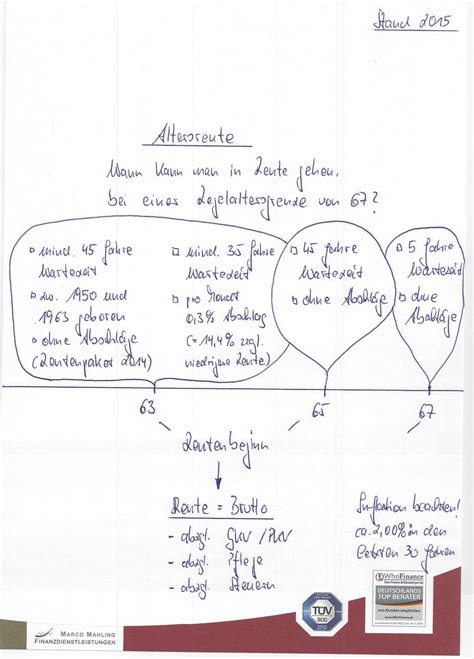 Stand 2015
Altersrente
Wann kann man in Rente gehen,
bei einer Regelaltersgrenze von 67?
mind. 45 Jahre
Wartezeit
zw. 1950 und
1963 geboren
ohne Abschläge
(Rentenpaket 2014)
mind. 35 Jahre
Wartezeit
pro Monat
0,3% Abschlag
(= 14,4% zzgl.
niedrigere Rente)
45 Jahre
Wartezeit
ohne Abschläge
5 Jahre
Wartezeit
ohne
Abschläge
63
65
67
Rentenbeginn
Rente = Brutto
- abzgl. GKV / PKV
- abzgl. Pflege
- abzgl. Steuern
Inflation beachten!
ca. 2,00% in den
letzten 30 Jahren
MARCO MAHLING
FINANZDIENSTLEISTUNGEN
TÜV
SÜD
WhoFinance
DEUTSCHLANDS
TOP BERATER
von Kunden empfohlen